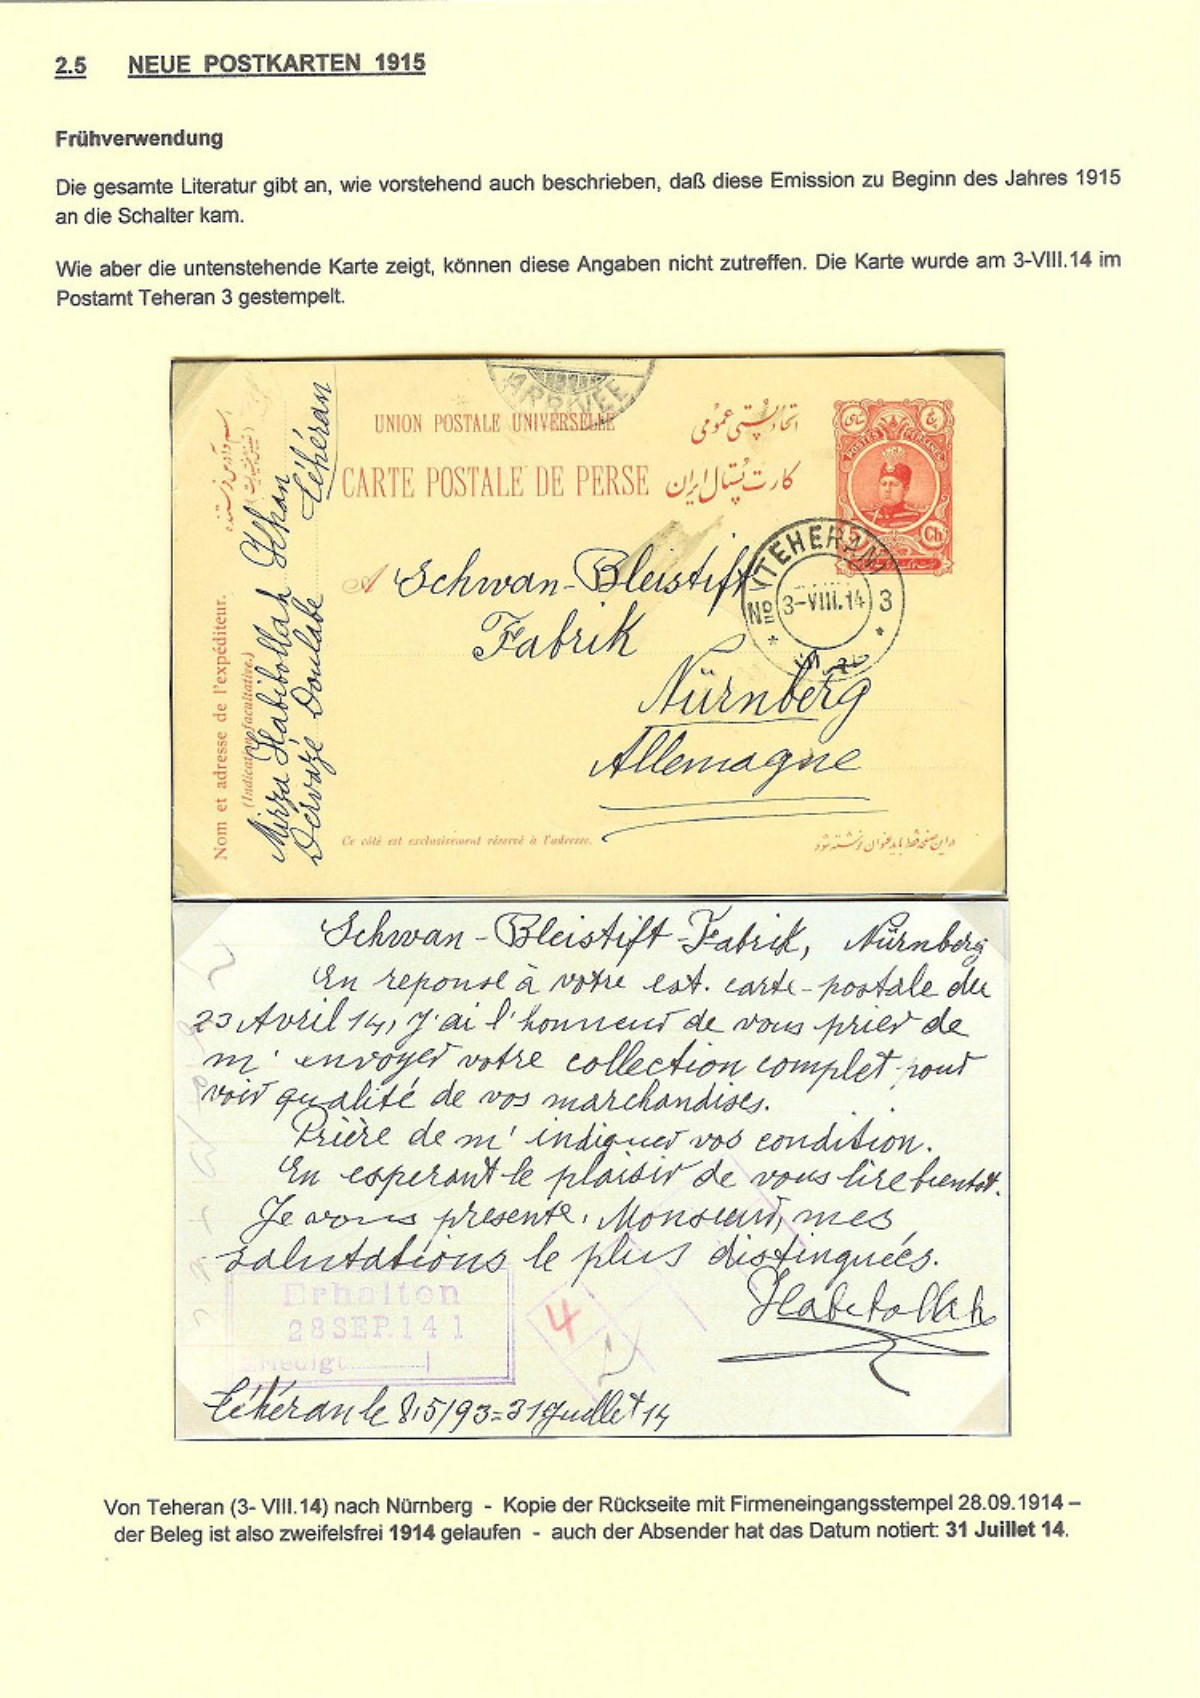 2.5 NEUE POSTKARTEN 1915
Frühverwendung
Die gesamte Literatur gibt an, wie vorstehend auch beschrieben, daß diese Emission zu Beginn des Jahres 1915
an die Schalter kam.
Wie aber die untenstehende Karte zeigt, können diese Angaben nicht zutreffen. Die Karte wurde am 3-VIII.14 im
Postamt Teheran 3 gestempelt.
ARRIVÉE
UNION POSTALE UNIVERSELLE
اتحاد پستی عمومی
CARTE POSTALE DE PERSE
کارت پستال ایران
POSTES PERSANES
5 Ch
TEHERAN
No 3-VIII.14 3
Nom et adresse de l'expéditeur.
(Indication facultative.)
Mirza Habibollah Khan
Dervazé Doulabe Téhéran
A Schwan-Bleistift
Fabrik
Nürnberg
Allemagne
Ce côté est exclusivement réservé à l'adresse.
در این صفحه فقط باید عنوان نوشته شود
Schwan-Bleistift-Fabrik, Nürnberg
En reponse à votre est. carte-postale du
23 Avril 14, j'ai l'honneur de vous prier de
m'envoyer votre collection complet pour
voir qualité de vos marchandises.
Prière de m'indiquer vos condition.
En esperant le plaisir de vous lire bientot.
Je vous presente, Monsieur, mes
salutations le plus distinguées.
Habibollah
Erhalten
28 SEP. 14 1
Erledigt
4
Téhéran le 8/5/93=31 Juillet 14
Von Teheran (3- VIII.14) nach Nürnberg - Kopie der Rückseite mit Firmeneingangsstempel 28.09.1914 –
der Beleg ist also zweifelsfrei 1914 gelaufen - auch der Absender hat das Datum notiert: 31 Juillet 14.